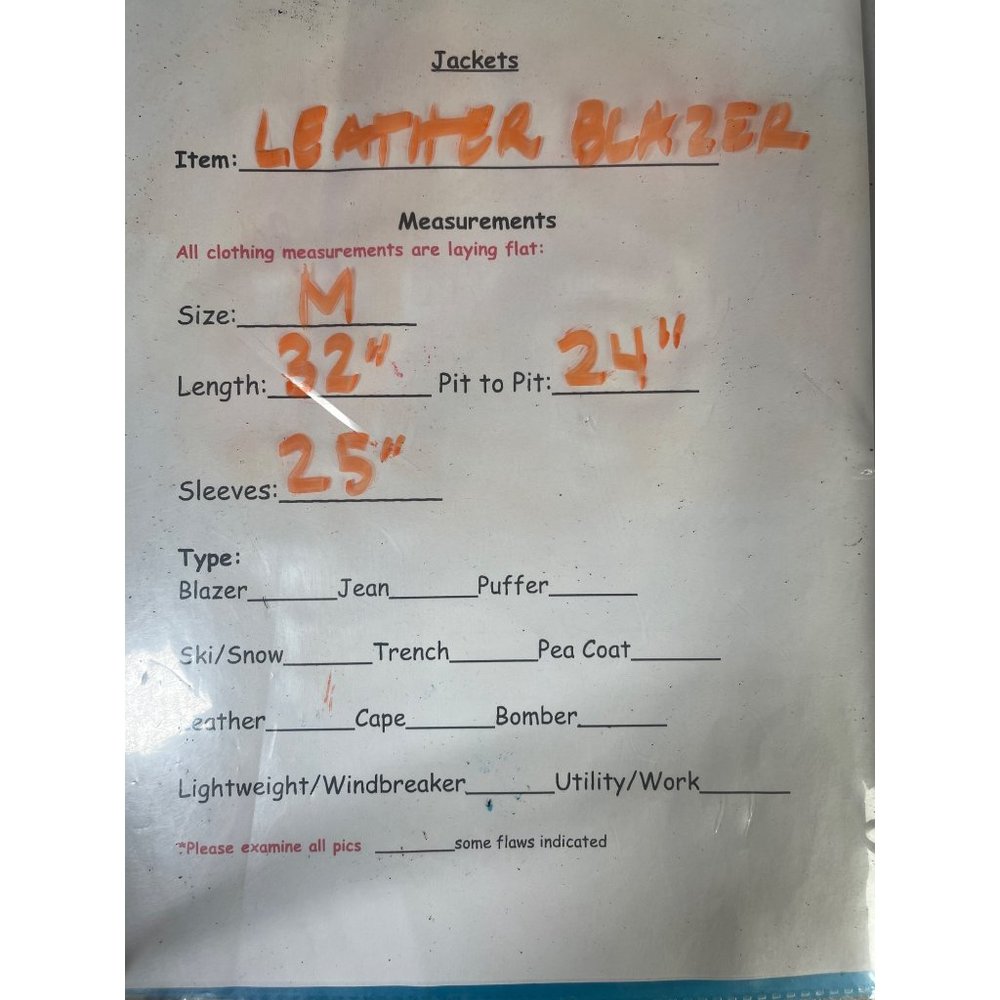 Jackets
Item: LEATHER BLAZER
Measurements
All clothing measurements are laying flat:
Size: M
Length: 32" Pit to Pit: 24"
Sleeves: 25"
Type:
Blazer______Jean______Puffer______
Ski/Snow______Trench______Pea Coat______
Leather______Cape______Bomber______
Lightweight/Windbreaker______Utility/Work______
*Please examine all pics ______some flaws indicated